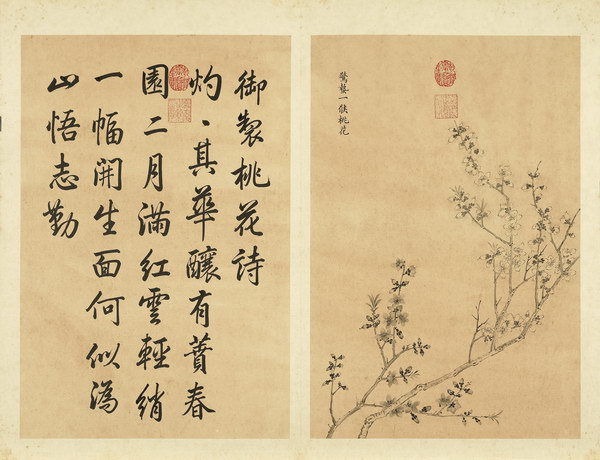 驚蟄一候桃花
御製桃花詩
灼〻其華釀有蕡春
園二月滿紅雲輕綃
一幅開生面何似溈
山悟志勤